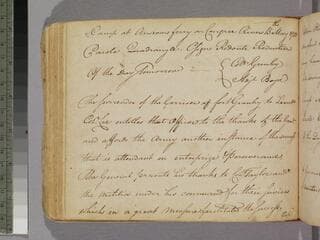 Camp at Ancrums ferry on Congree River 16th May 1781
Parole Quadrangle. CSigns Redoute Reduction
Of the Day Tomorrow
Col. Gunby
Maj. Boyd
The surrender of the Garrison of fort Granby to Lieut.
Col. Lee entitles that Officer to the thanks of the
and affords the Army another instance of the
that is attendant on enterprize & Perseverance
The General presents his thanks to Col. Taylor and
the militia under his command for their services
which in a great measure facilitated the success